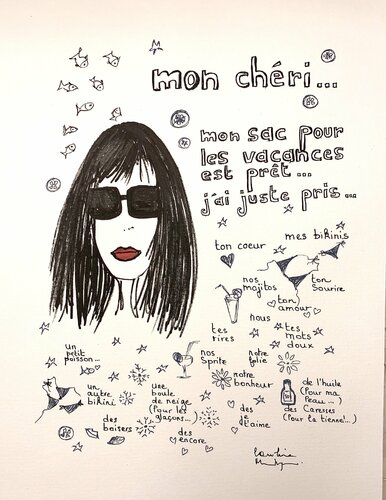 mon chéri...
mon sac pour
les vacances
est prêt...
j'ai juste pris...
ton coeur
mes bikinis
nos
mojitos
ton
sourire
ton
amour
nous
tes
rires
tes
mots
doux
un
petit
poisson...
nos
spritz
notre
folie
notre
bonheur
un
autre
bikini
une
boule
de neige
(pour les
glaçons...)
de l'huile
(pour ma
peau...)
des caresses
(pour la tienne...)
des
baisers
des
je
t'aime
des
encore